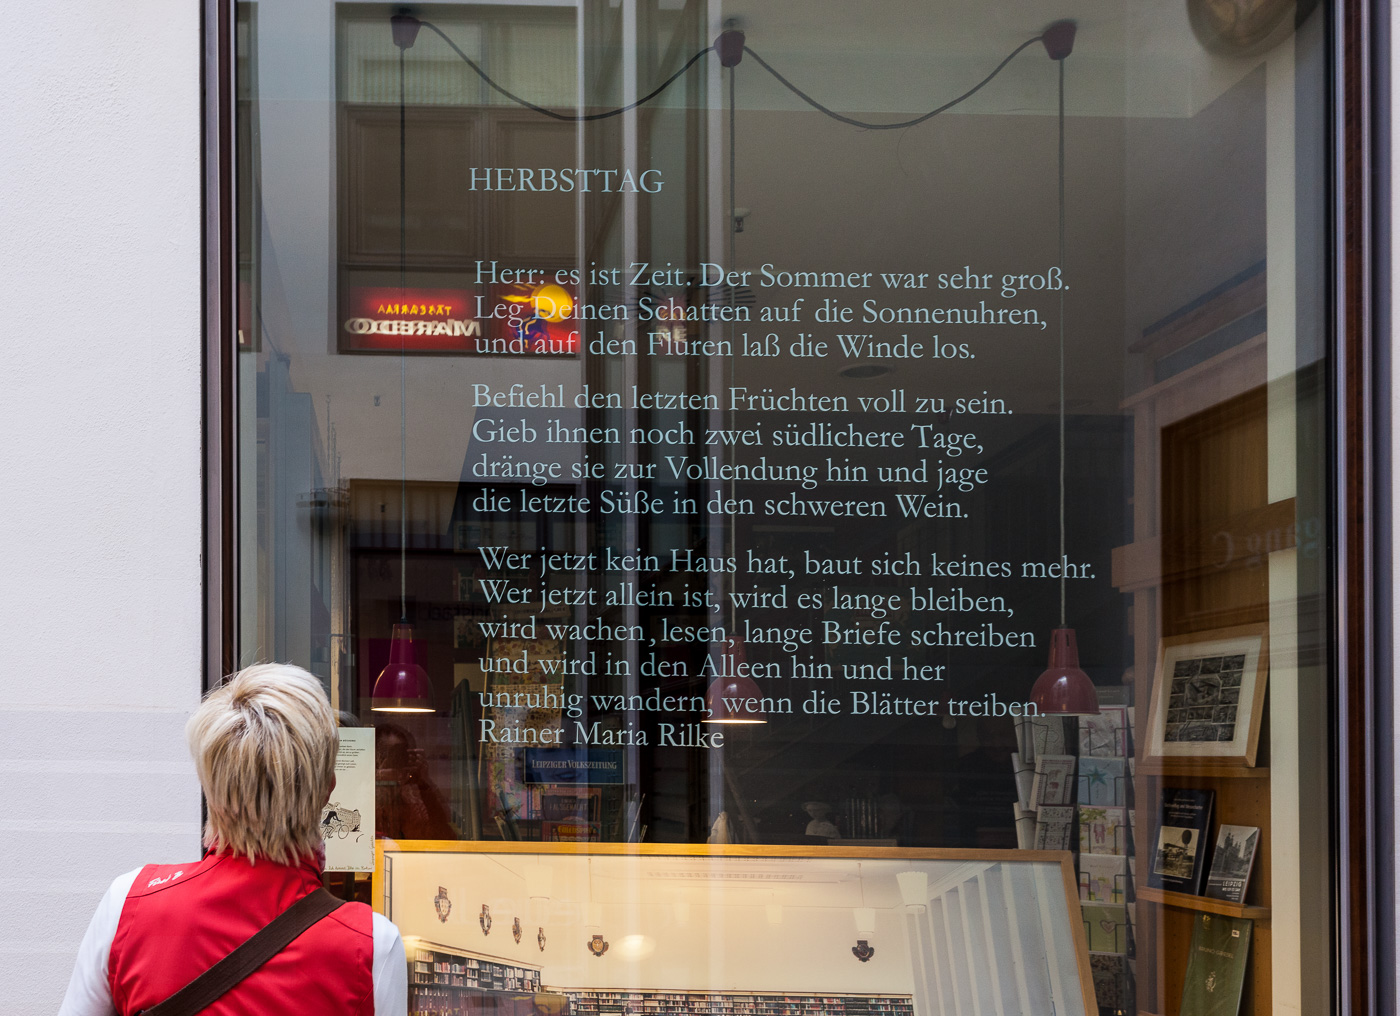 HERBSTTAG
Herr: es ist Zeit. Der Sommer war sehr groß.
Leg Deinen Schatten auf die Sonnenuhren,
und auf den Fluren laß die Winde los.
Befiehl den letzten Früchten voll zu sein.
Gieb ihnen noch zwei südlichere Tage,
dränge sie zur Vollendung hin und jage
die letzte Süße in den schweren Wein.
Wer jetzt kein Haus hat, baut sich keines mehr.
Wer jetzt allein ist, wird es lange bleiben,
wird wachen, lesen, lange Briefe schreiben
und wird in den Alleen hin und her
unruhig wandern, wenn die Blätter treiben.
Rainer Maria Rilke
LEIPZIGER VOLKSZEITUNG
LEIPZIG